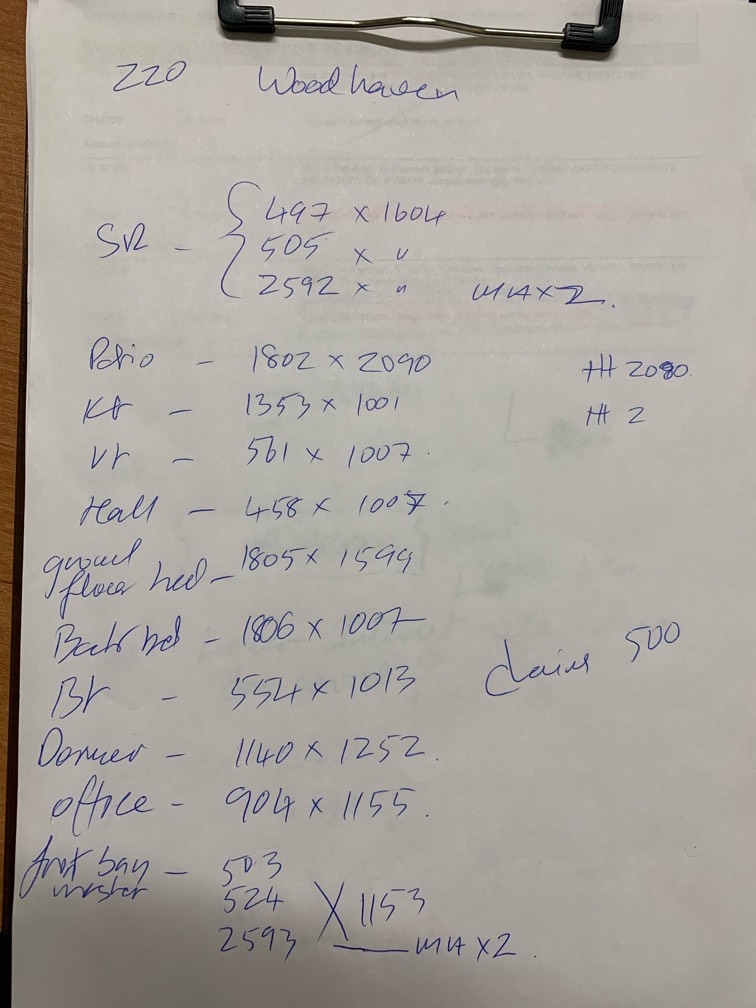 220 Woodhaven
497 x 1604
SR - 505 x "
2592 x " MHX2.
Patio - 1802 x 2090 HH 2080.
Kt - 1353 x 1001 HH 2
Vr - 561 x 1007.
Hall - 458 x 1007.
ground
floor bed - 1805 x 1599
Back bed - 1806 x 1007
Br - 554 x 1013 chains 500
Dormer - 1140 x 1252.
office - 904 x 1155.
front bay - 503
master 524 X 1153
2593 MHX2.